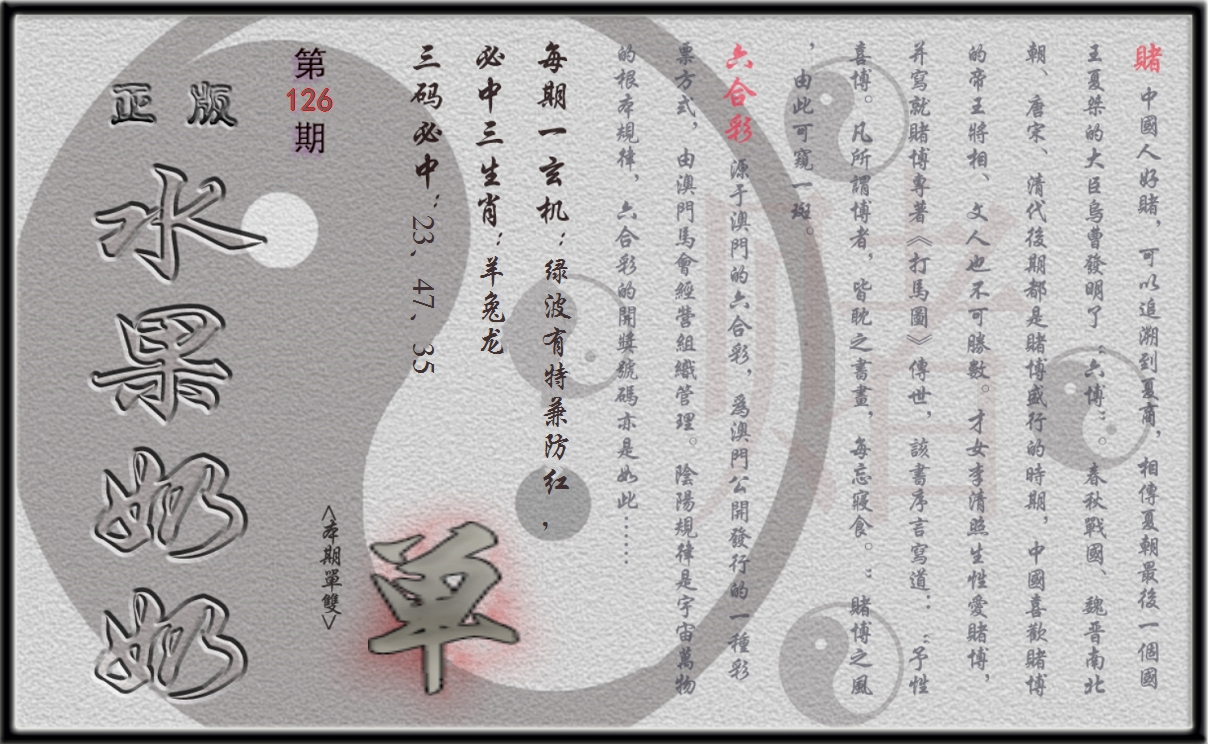 賭 中國人好賭，可以追溯到夏商，相傳夏朝最後一個國
王夏桀的大臣烏曹發明了“六博”。春秋戰國、魏晉南北
朝、唐宋、清代後期都是賭博盛行的時期，中國喜歡賭博
的帝王將相、文人也不可勝數。才女李清照生性愛賭博，
并寫就賭博專著《打馬圖》傳世，該書序言寫道：“予性
喜博。凡所謂博者，皆耽之晝晝，每忘寢食。”賭博之風
，由此可窺一斑。
六合彩 源于澳門的六合彩，爲澳門公開發行的一種彩
票方式，由澳門馬會經營組織管理。陰陽規律是宇宙萬物
的根本規律，六合彩的開獎號碼亦是如此……
每期一玄机：绿波有特兼防红，
必中三生肖：羊兔龙
三码必中：23、47、35
第
126
期
<本期單雙>
單
正版
水果奶奶
賭